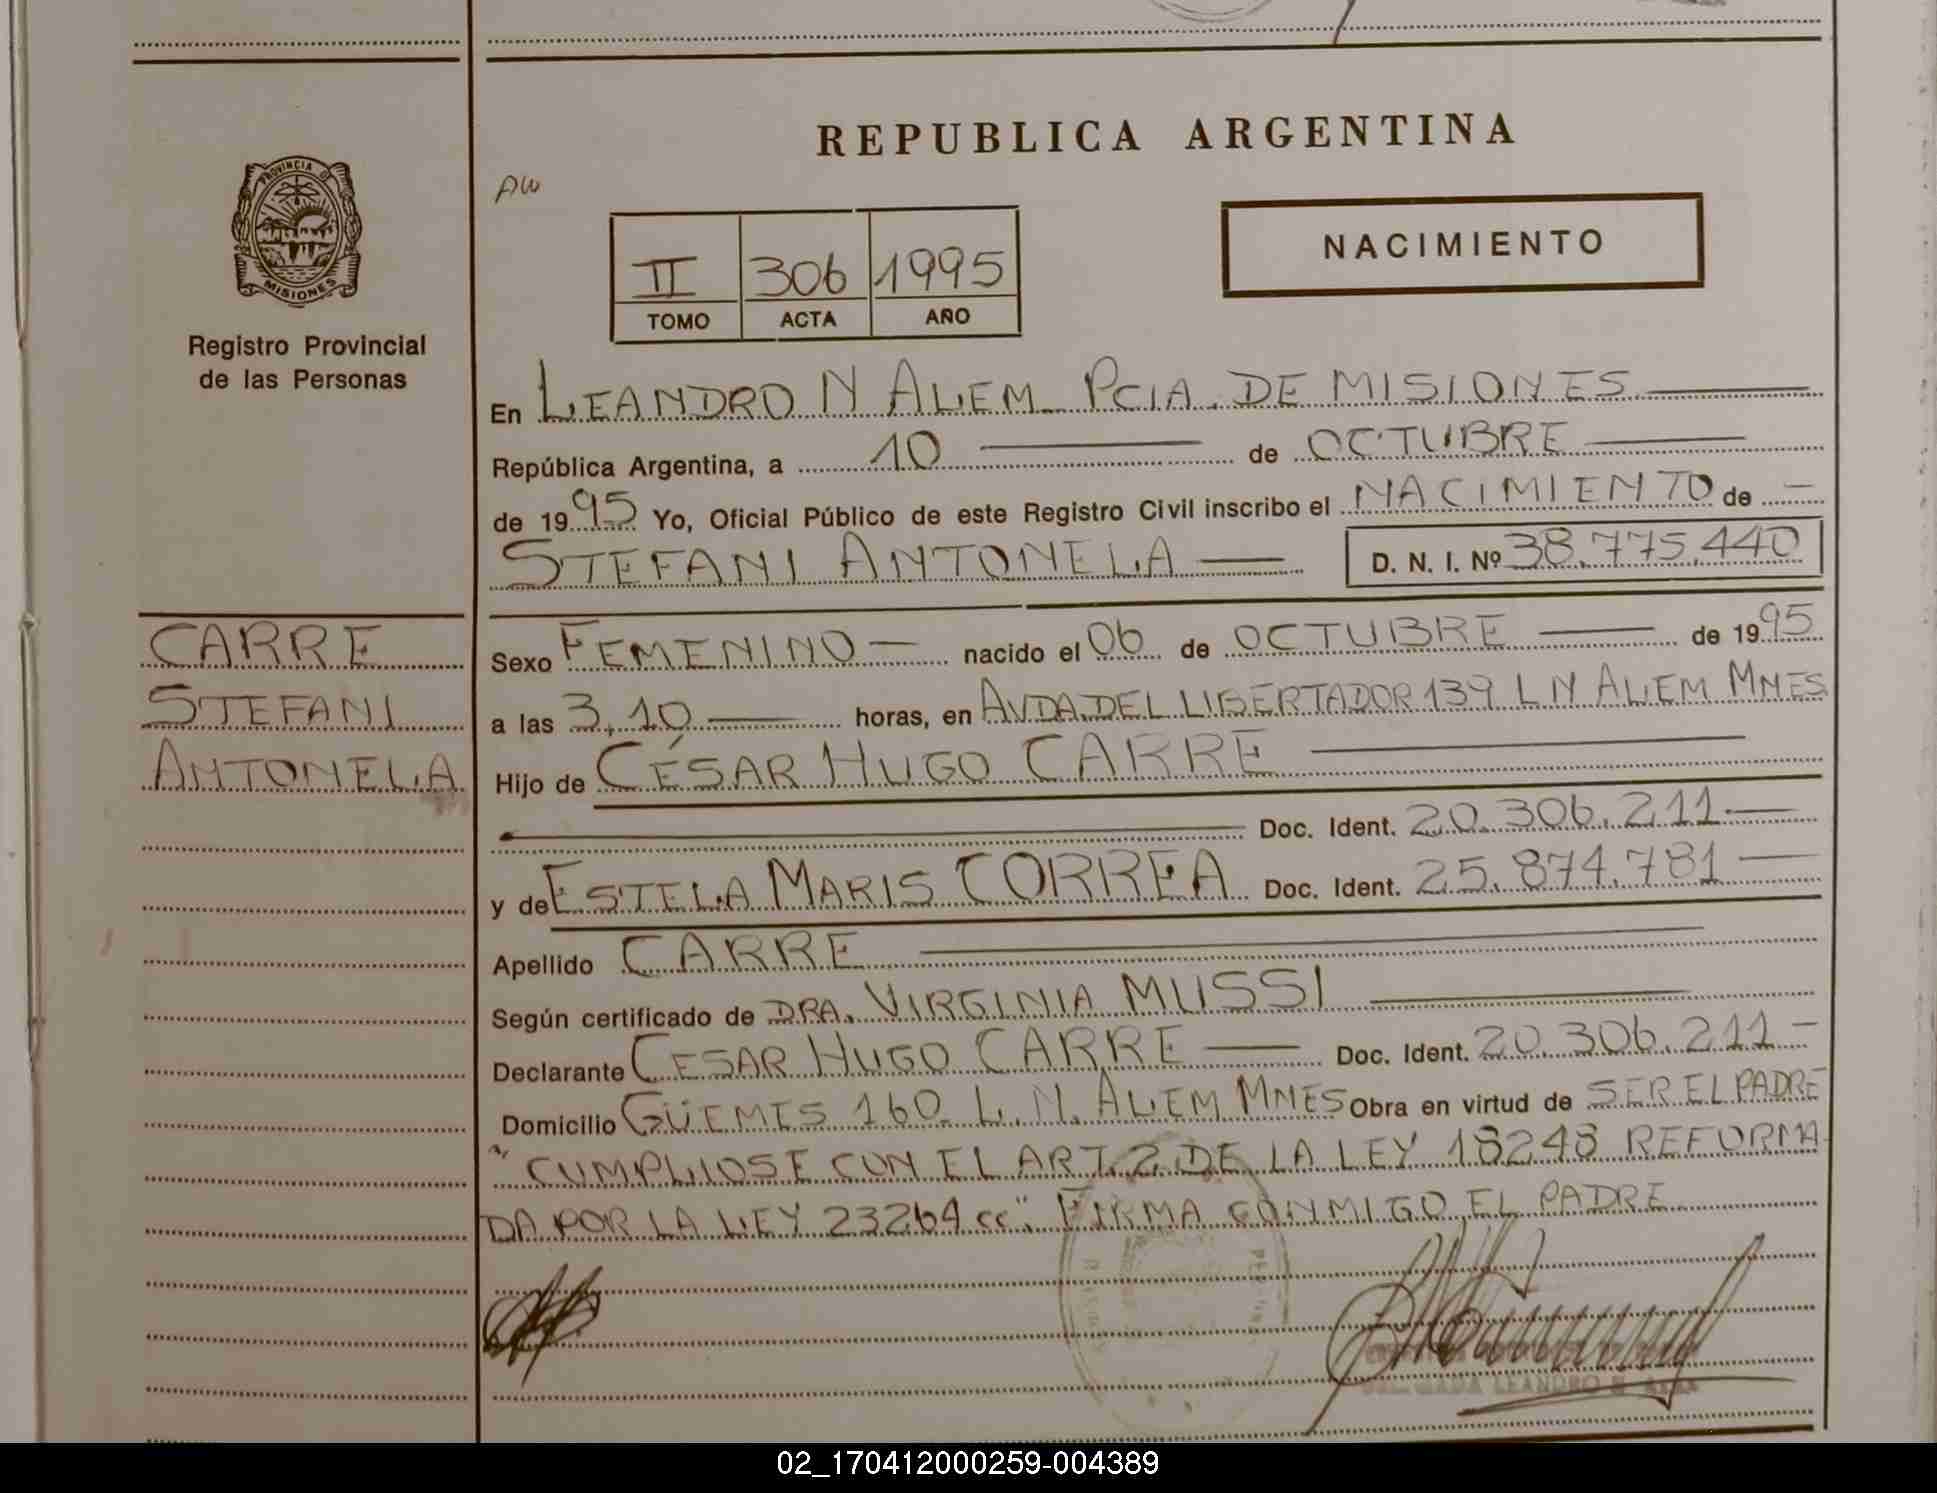 REPUBLICA ARGENTINA
PROVINCIA D
MISIONES
Registro Provincial
de las Personas
AW
II 306 1995
TOMO ACTA AÑO
NACIMIENTO
En LEANDRO N ALEM PCIA. DE MISIONES
República Argentina, a 10 de OCTUBRE
de 1995 Yo, Oficial Público de este Registro Civil inscribo el NACIMIENTO de
STEFANI ANTONELA D. N. I. Nº 38.775.440
CARRE
STEFANI
ANTONELA
Sexo FEMENINO nacido el 06 de OCTUBRE de 1995
a las 3,10 horas, en AVDA.DEL LIBERTADOR 139 L N ALEM MNES
Hijo de CÉSAR HUGO CARRE
Doc. Ident. 20.306.211
y de ESTELA MARIS CORREA Doc. Ident. 25.874.781
Apellido CARRE
Según certificado de DRA. VIRGINIA MUSSI
Declarante CESAR HUGO CARRE Doc. Ident. 20.306.211
Domicilio GÜEMES 160 L.N. ALEM MNES Obra en virtud de SER EL PADRE
" CUMPLIOSE CON EL ART. 2 DE LA LEY 18248 REFORMA
DA POR LA LEY 23264 cc". FIRMA CONMIGO EL PADRE
LEANDRO N. ALEM
02_170412000259-004389